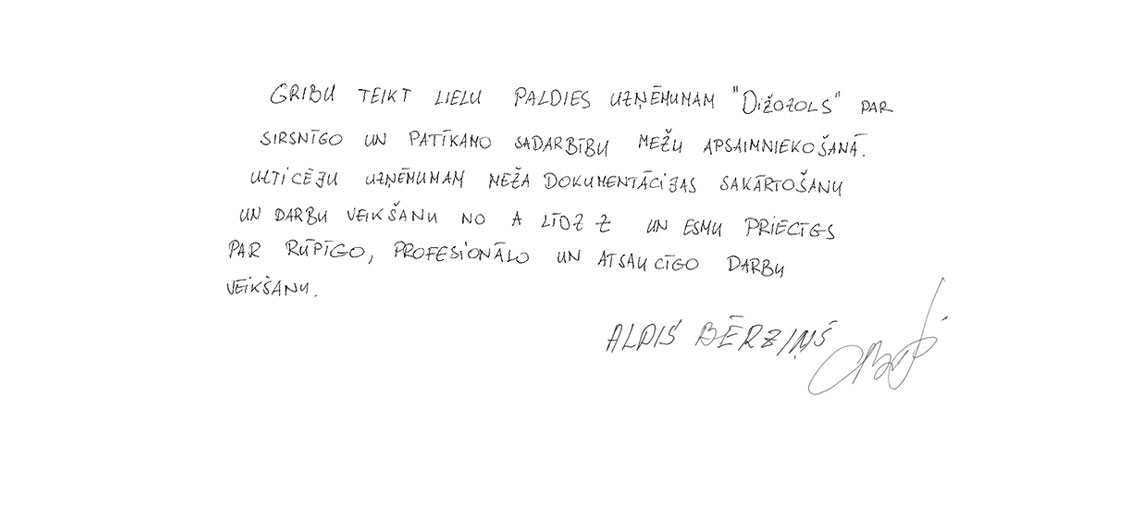 GRIBU TEIKT LIELU PALDIES UZŅĒMUMAM "DIŽOZOLS" PAR
SIRSNĪGO UN PATĪKAMO SADARBĪBU MEŽU APSAIMNIEKOŠANĀ.
UZTICĒJU UZŅĒMUMAM MEŽA DOKUMENTĀCIJAS SAKĀRTOŠANU
UN DARBU VEIKŠANU NO A LĪDZ Z UN ESMU PRIECĪGS
PAR RŪPĪGO, PROFESIONĀLO UN ATSAUCĪGO DARBU
VEIKŠANU.
ALDIS BĒRZIŅŠ